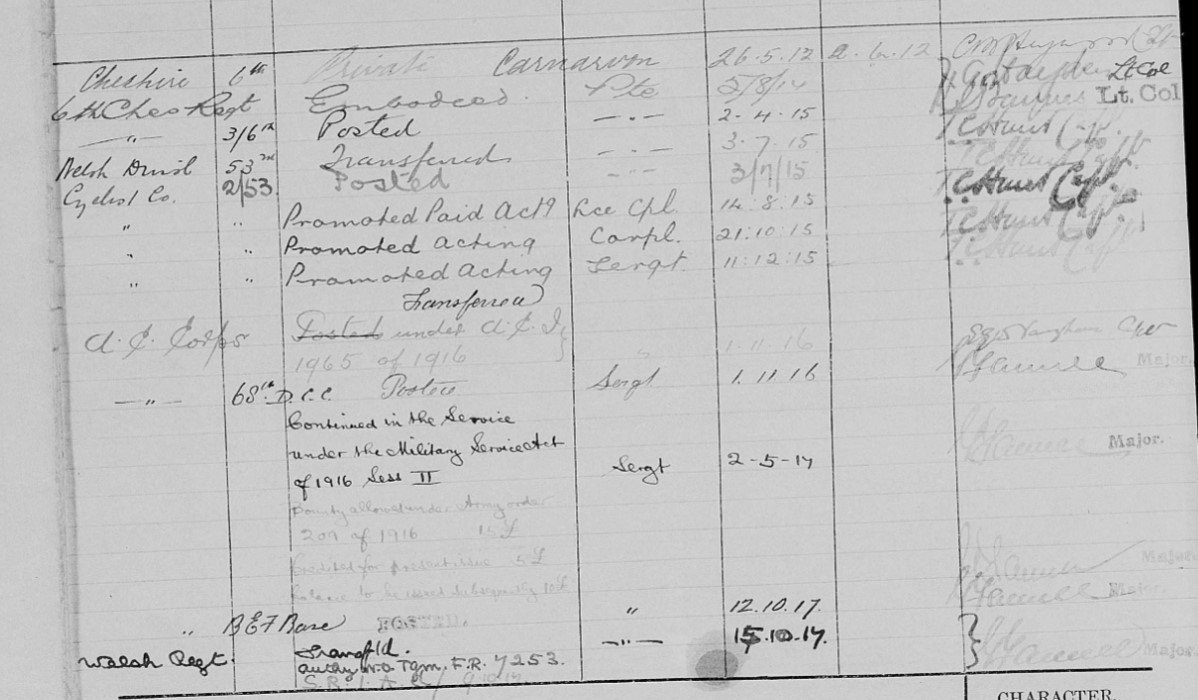 Cheshire 6th Private Carnarvon 26.5.12 2.6.12
6th Ches Regt Embodied Pte 5/8/14 Lt Col
—"— 3/6th Posted —"— 2.4.15 Lt. Col
Welsh Divisl 53rd Transferred —"— 3.7.15 T C Hunt Capt.
Cyclist Co. 2/53. Posted —"— 3/7/15 T C Hunt Capt.
" " Promoted Paid Actg Lce Cpl. 14.8.15 T C Hunt Capt.
" " Promoted Acting Corpl. 21.10.15 T C Hunt Capt.
" " Promoted Acting Sergt. 11.12.15 T C Hunt Capt
Transferred
A. C. Corps Posted under A.C.I. } " 1.11.16
1965 of 1916 Major.
—"— 68th D.C.C. Posted Sergt 1.11.16
Continued in the Service
under the Military Service Act Major.
of 1916 Sess II Sergt 2-5-17
Bounty allowed under Army order
209 of 1916 15£
Credited for present issue 5£ Major.
Balance to be issued subsequently 10£ Major.
" B E F Base POSTED. " 12.10.17.
Walsh Regt. Transf'd. —"— 15.10.17. Major.
authy W.O. Tgm. F.R. 7253.
CHARACTER.